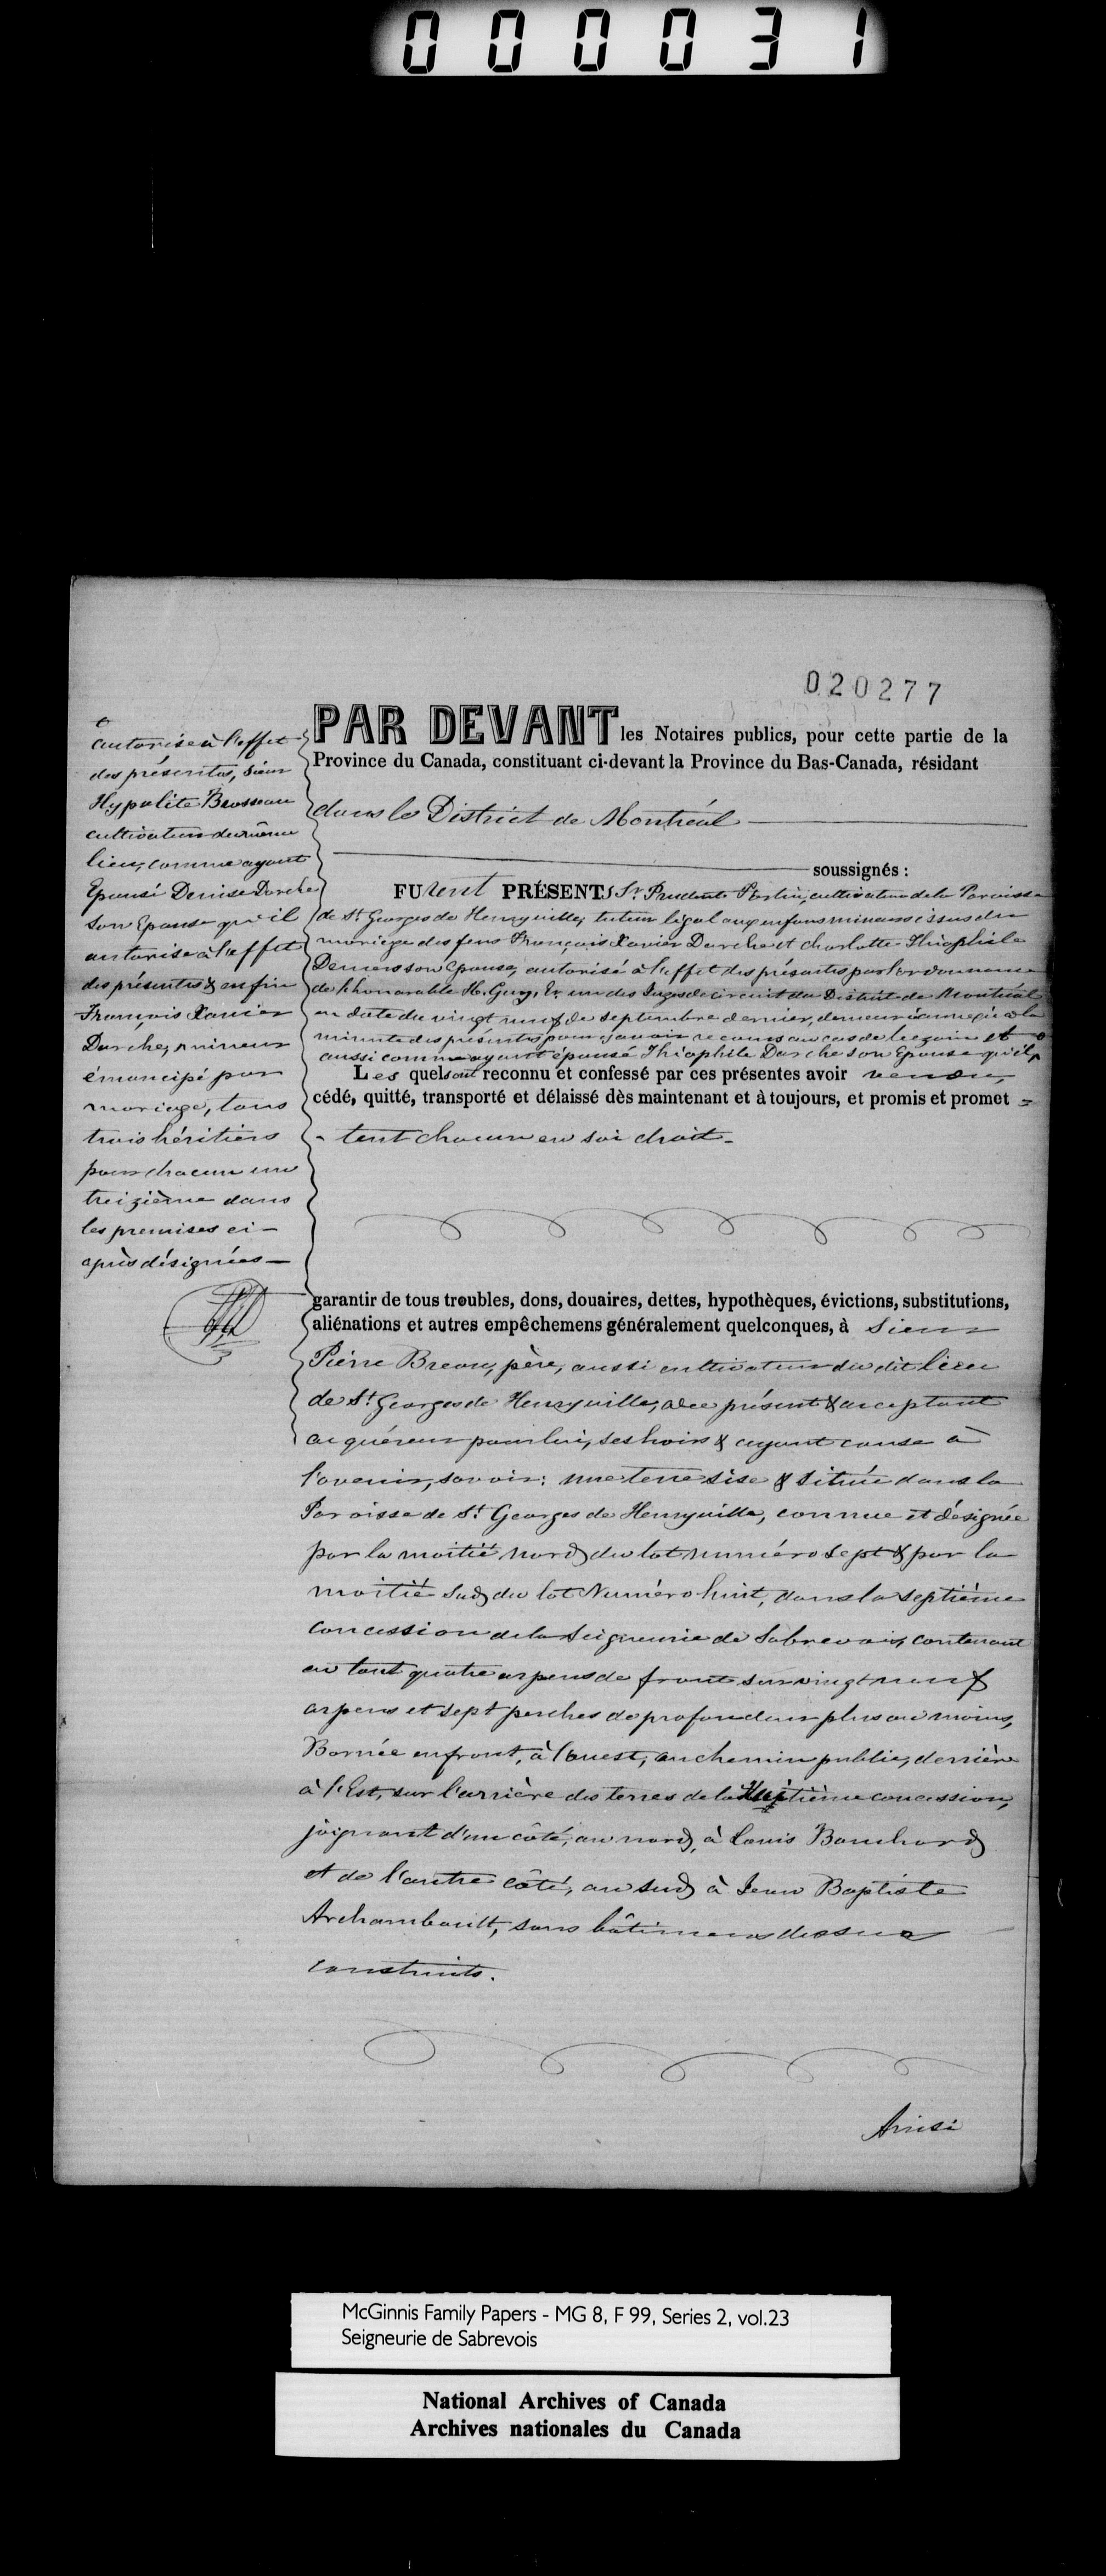 000031
020277
PAR DEVANT les Notaires publics, pour cette partie de la
Province du Canada, constituant ci-devant la Province du Bas-Canada, résidant
dans le District de Montréal
soussignés :
FUrent PRÉSENTS Sr. Prudent cultivateur de la Paroisse
de St. Georges de Henryville, tuteur légal aux enfans mineurs issus du
mariage des feus François Xavier Darche et Charlotte Théophile
Demers son Epouse, autorisé à l'effet des présentes par l'ordonnance
de l'honorable H. Guy, Er. un des Juges de circuit du District de Montréal
en date du vingt neuf de Septembre dernier, demeurée annexée à la
minute des présentes pour y avoir recours au cas de besoin et
aussi comme ayant épousé Théophile Darche son Epouse qu'il
Les quels ont reconnu et confessé par ces présentes avoir vendu,
cédé, quitté, transporté et délaissé dès maintenant et à toujours, et promis et promet =
- tent chacun en soi droit -
autorise à l'effet
des présentes, Sieur
Hypolite Brosseau
cultivateur du même
lieu, comme ayant
Epousé Denise Darche
son Epouse qu'il
autorise à l'effet
des présentes & enfin
François Xavier
Darche, mineur
émancipé par
mariage, tous
trois héritiers
pour chacun un
treizième dans
les premises ci-
après désignées —
garantir de tous troubles, dons, douaires, dettes, hypothèques, évictions, substitutions,
aliénations et autres empêchemens généralement quelconques, à Sieur
Pierre Breau, père, aussi cultivateur du dit lieu
de St. Georges de Henryville, à ce présent & acceptant
acquéreur pour lui, ses hoirs & ayant cause à
l'avenir, savoir : une terre sise & située dans la
Paroisse de St. Georges de Henryville, connue et désignée
par la moitié nord du lot numéro sept & par la
moitié Sud du lot Numéro huit, dans la septième
concession de la Seigneurie de Sabrevois, contenant
en tout quatre arpens de front sur vingt neuf
arpens et sept perches de profondeur plus ou moins,
Bornée en front, à l'ouest, au chemin public, derrière
à l'Est, sur l'arrière des terres de la concession,
joignant d'un côté, au nord, à Louis Bouchard
et de l'autre côté, au sud à Jean Baptiste
Archambault, sans bâtimens dessus
construits.
Ainsi
McGinnis Family Papers - MG 8, F 99, Series 2, vol.23
Seigneurie de Sabrevois
National Archives of Canada
Archives nationales du Canada